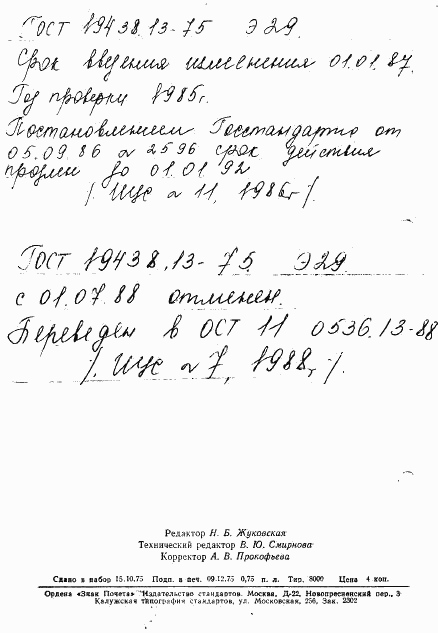 ГОСТ 19438.13-75 Э29.
Срок введения изменения 01.01.87.
Год проверки 1985г.
Постановлением Госстандарта от
05.09.86 № 2596 срок действия
продлен до 01.01.92
/. ИУС № 11, 1986г /.
ГОСТ 19438.13-75. Э29
с 01.07.88 отменен.
Переведен в ОСТ 11 0536.13-88
/. ИУС № 7, 1988г /.
Редактор Н. Б. Жуковская
Технический редактор В. Ю. Смирнова
Корректор А. В. Прокофьева
Сдано в набор 15.10.75 Подп. в печ. 09.12.75 0,75 п. л. Тир. 8000 Цена 4 коп.
Ордена «Знак Почета» Издательство стандартов. Москва, Д-22, Новопресненский пер., 3
Калужская типография стандартов, ул. Московская, 256, Зак. 2302